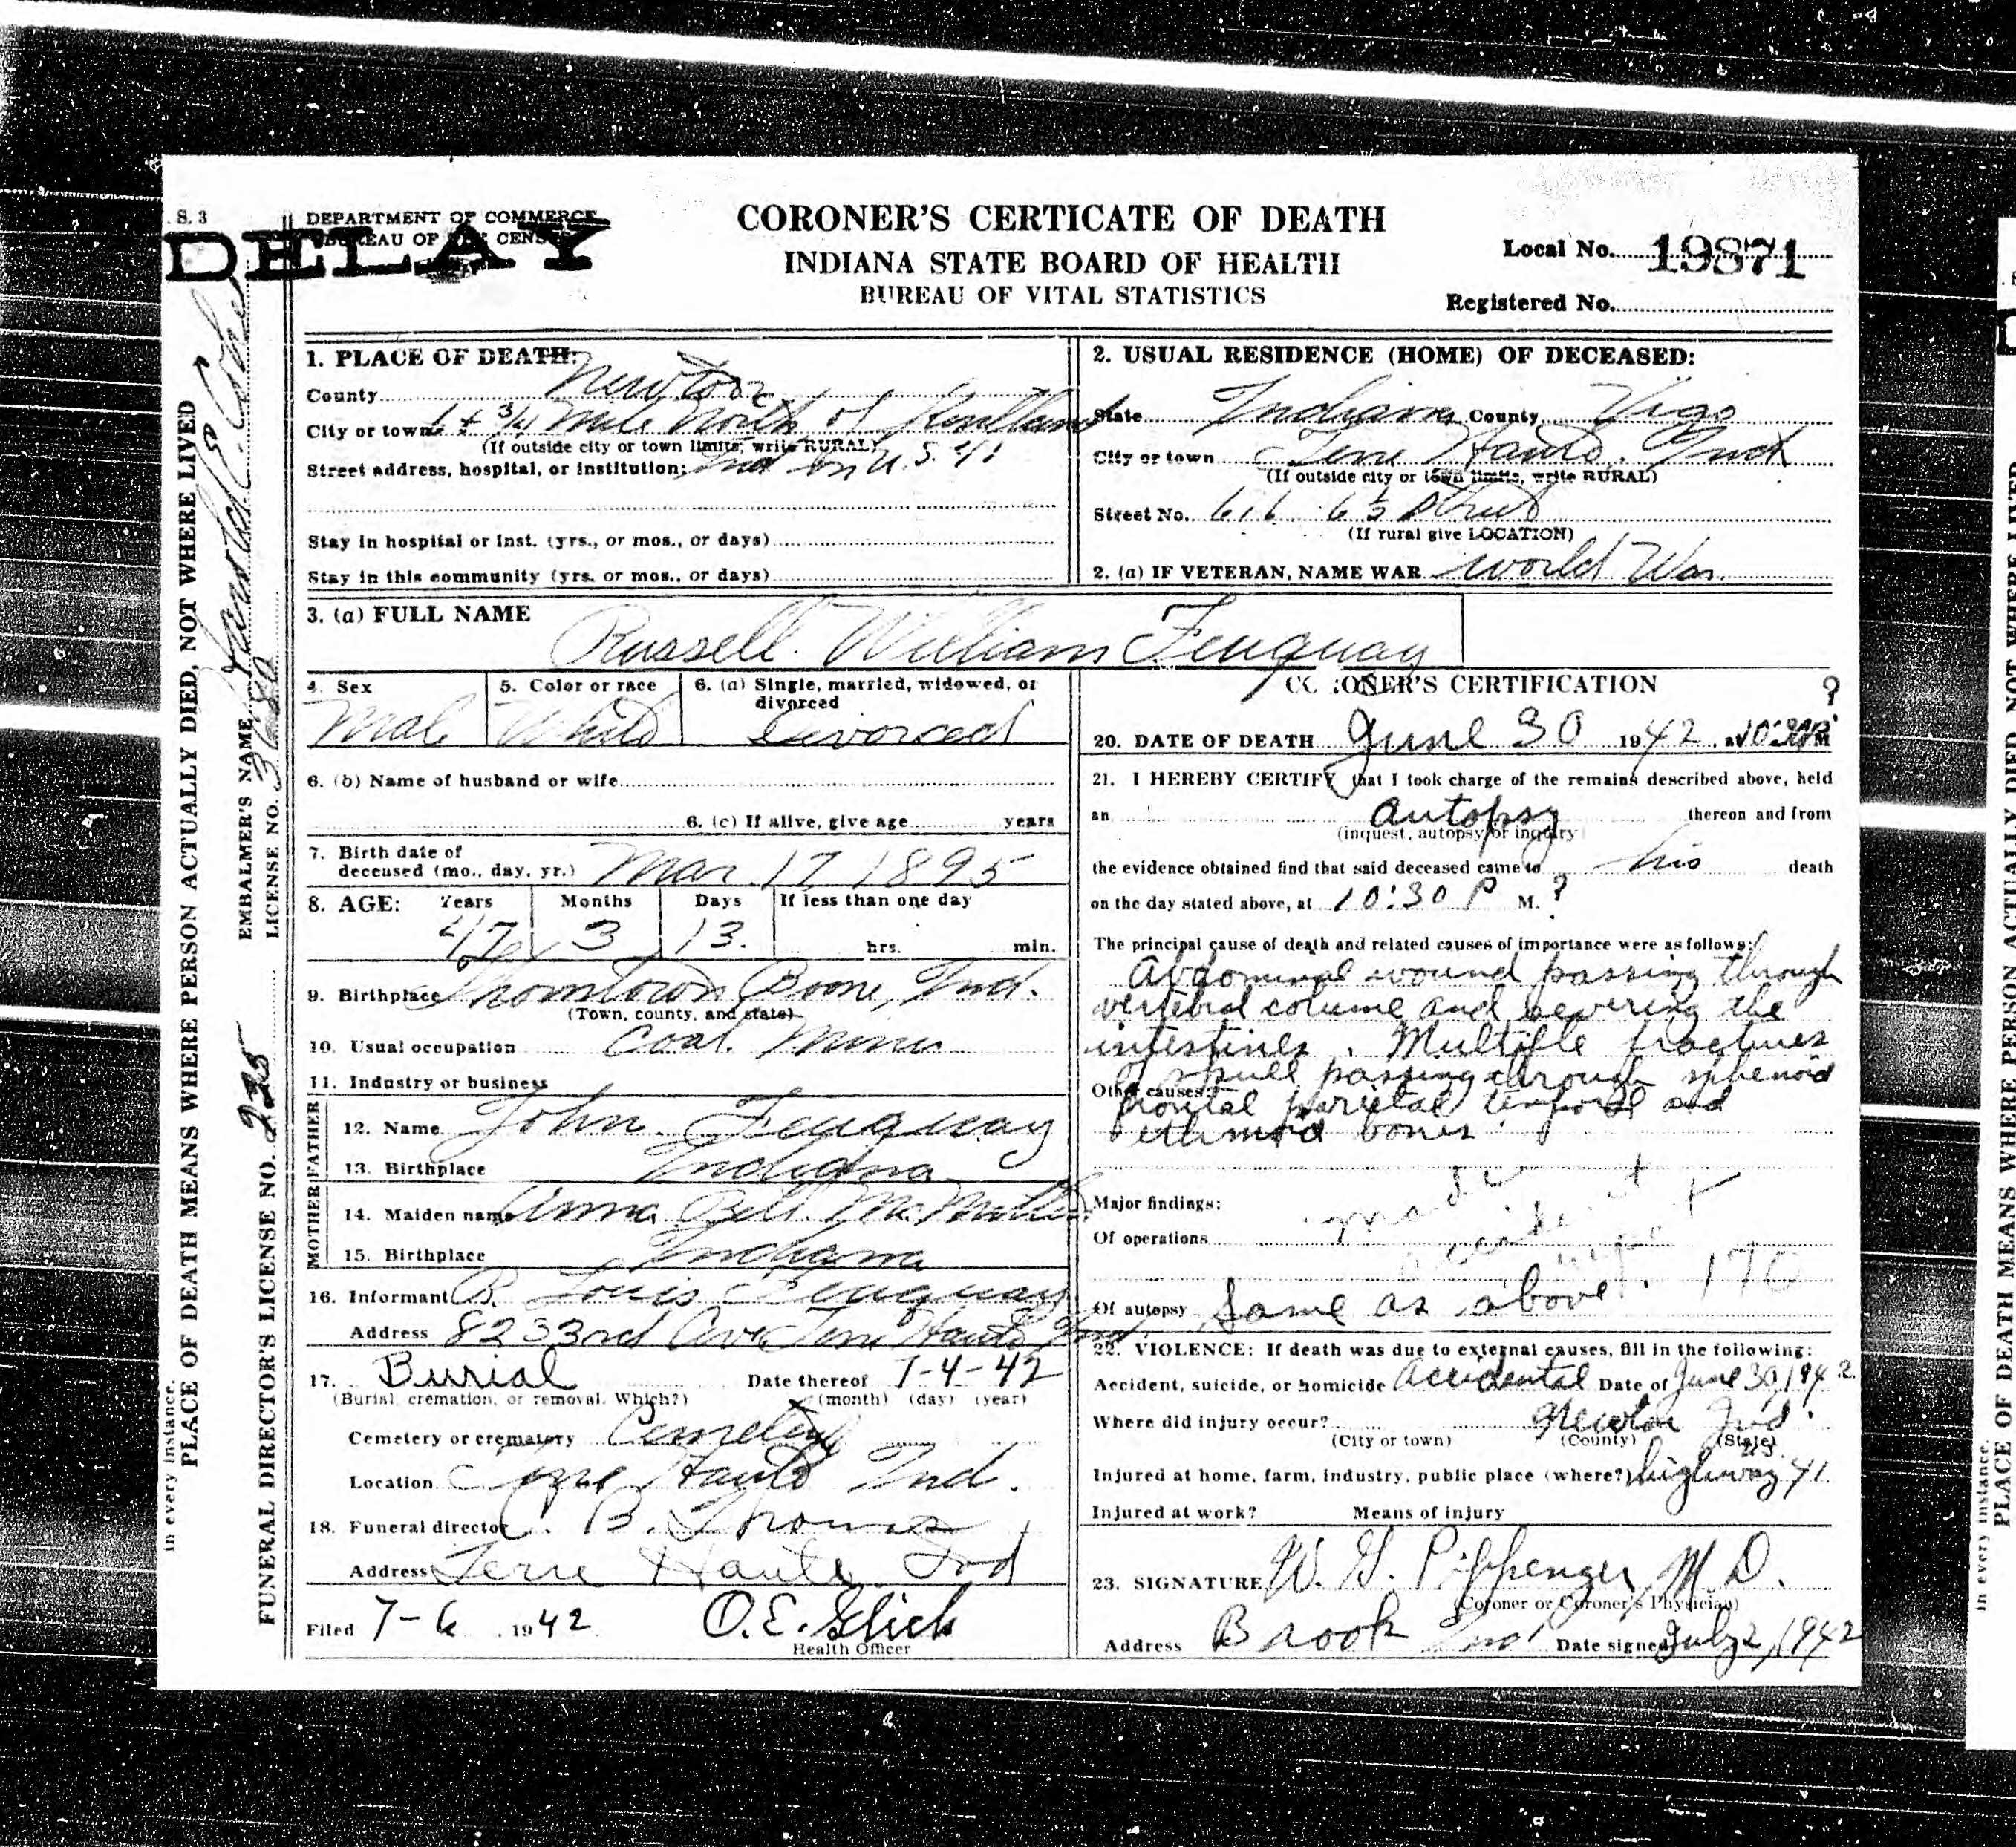 S. 3
DELAY
DEPARTMENT OF COMMERCE
BUREAU OF THE CENSUS
CORONER'S CERTICATE OF DEATH
INDIANA STATE BOARD OF HEALTH
BUREAU OF VITAL STATISTICS
Local No. 19871
Registered No.
in every instance.
PLACE OF DEATH MEANS WHERE PERSON ACTUALLY DIED, NOT WHERE LIVED
EMBALMER'S NAME
LICENSE NO.
FUNERAL DIRECTOR'S LICENSE NO. 225
1. PLACE OF DEATH:
County Newton
City or town 6 + 3/4 Mile North of Kentland
(If outside city or town limits, write RURAL)
Street address, hospital, or institution: Ind on U.S. 41
Stay in hospital or inst. (yrs., or mos., or days)
Stay in this community (yrs. or mos., or days)
2. USUAL RESIDENCE (HOME) OF DECEASED:
State Indiana County Vigo
City or town Terre Haute, Ind
(If outside city or town limits, write RURAL)
Street No. 616 6½ Street
(If rural give LOCATION)
2. (a) IF VETERAN, NAME WAR World War
3. (a) FULL NAME
Russell William Fuquay
4. Sex
Male
5. Color or race
White
6. (a) Single, married, widowed, or divorced
Divorced
6. (b) Name of husband or wife
6. (c) If alive, give age years
7. Birth date of
deceased (mo., day, yr.) Mar. 17 1895
8. AGE: Years Months Days If less than one day
47 3 13 hrs. min.
9. Birthplace Thorntown Boone, Ind.
(Town, county, and state)
10. Usual occupation Coal Miner
11. Industry or business
FATHER
12. Name John Fuquay
13. Birthplace Indiana
MOTHER
14. Maiden name Anna Bell McMullen
15. Birthplace Indiana
16. Informant R. Louis Fuquay
Address 823 3rd Ave Terre Haute Ind.
17. Burial Date thereof 7-4-42
(Burial, cremation, or removal. Which?) (month) (day) (year)
Cemetery or crematory Cemetery
Location Terre Haute Ind.
18. Funeral director C. B. Thomas
Address Terre Haute Ind
Filed 7-6 1942 O.E. Glick
Health Officer
CORONER'S CERTIFICATION
?
20. DATE OF DEATH June 30 1942, at 10:30 P M
21. I HEREBY CERTIFY that I took charge of the remains described above, held
an Autopsy thereon and from
(inquest, autopsy or inquiry)
the evidence obtained find that said deceased came to his death
on the day stated above, at 10:30 P M. ?
The principal cause of death and related causes of importance were as follows:
Abdominal wound passing through
vertebral column and severing the
intestines. Multiple fractures
of skull passing through sphenoid
Other causes:
frontal parietal temporal and
ethmoid bones.
Major findings:
Of operations
accident
170
Of autopsy Same as above.
22. VIOLENCE: If death was due to external causes, fill in the following:
Accident, suicide, or homicide Accidental Date of June 30, 1942
Where did injury occur? Newton Ind.
(City or town) (County) (State)
Injured at home, farm, industry, public place (where?) highway U.S. 41
Injured at work? Means of injury
23. SIGNATURE W. G. Pippenger M.D.
(Coroner or Coroner's Physician)
Address Brook Ind Date signed July 2, 1942
in every instance.
PLACE OF DEATH MEANS WHERE PERSON ACTUALLY DIED, NOT WHERE LIVED